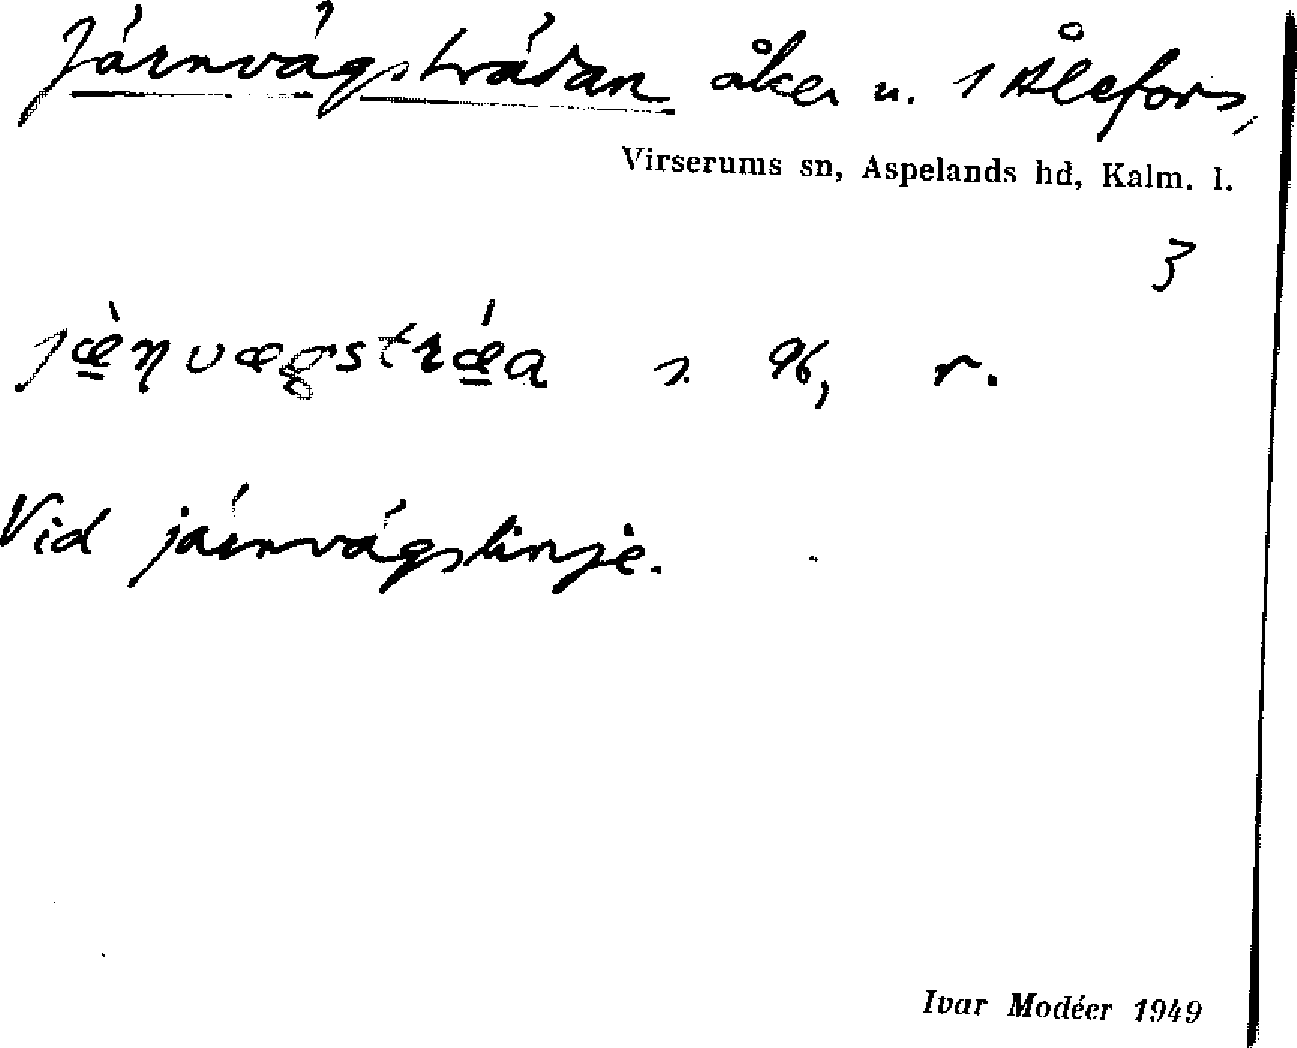 Järnvägsträdan åker u. 1 Ålefors,
Virserums sn, Aspelands hd, Kalm. l.
3
jæ̀ṇvægstrǽa s. %, r.
Vid järnvägslinje.
Ivar Modéer 1949